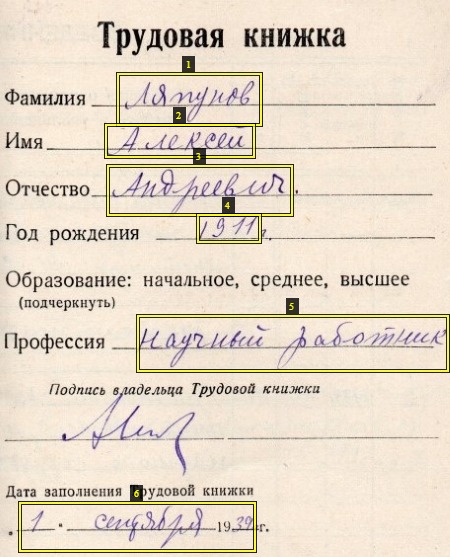 Трудовая книжка
1
Фамилия Ляпунов
2
Имя Алексей
3
Отчество Андреевич.
4
Год рождения 1911 г.
Образование: начальное, среднее, высшее
(подчеркнуть)
5
Профессия научный работник
Подпись владельца Трудовой книжки
6
Дата заполнения Трудовой книжки
„1" сентября 1939 г.